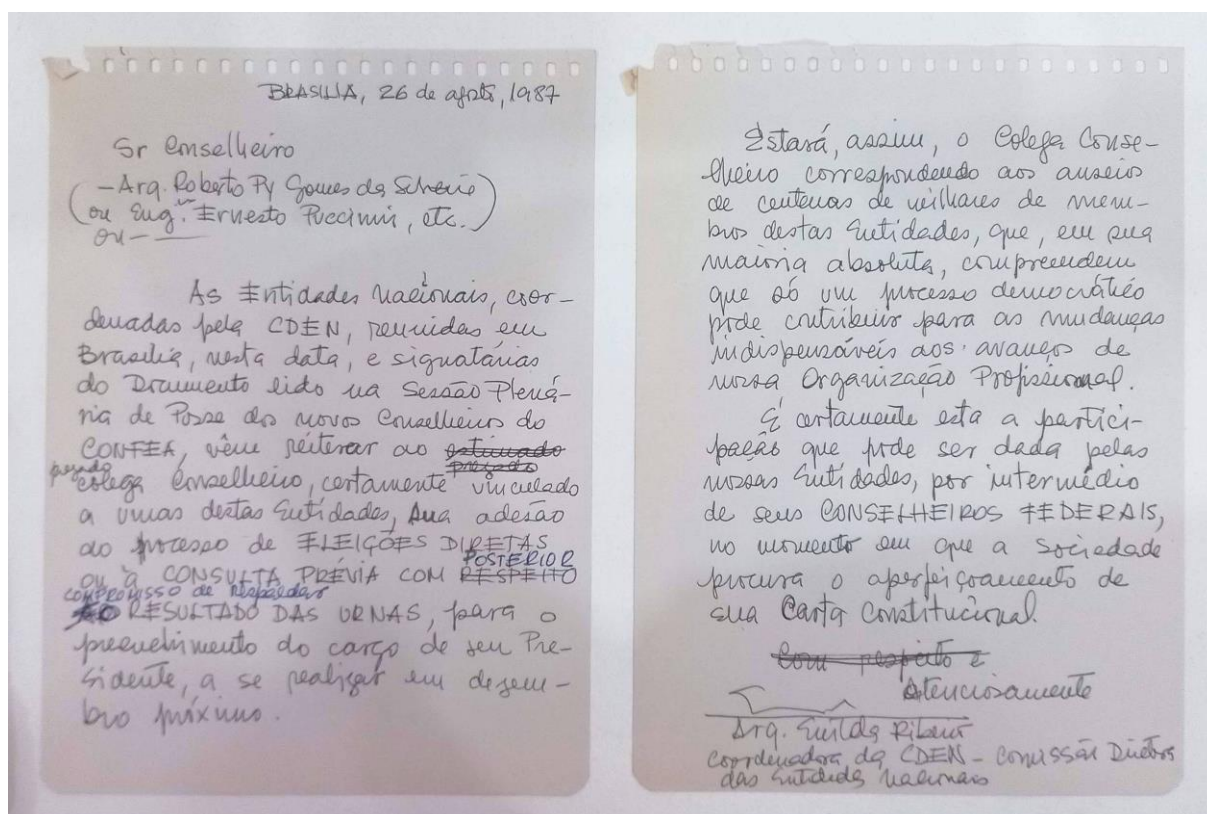 BRASILIA, 26 de agosto, 1987
Sr Conselheiro
(-Arq. Roberto Py Gomes da
ou Eng. Ernesto Puccimis, etc.)
ou -
As Entidades Nacionais, coor-
denadas pela CDEN, reunidas em
Brasilia, nesta data, e signatárias
do Documento lido na Sessão Plená-
ria de Posse dos novos Conselheiros do
CONFEA, vêm reiterar ao estimado
prezado
prezado
colega Conselheiro, certamente vinculado
a umas destas Entidades, sua adesão
ao processo de ELEIÇÕES DIRETAS
POSTERIOR
ou à CONSULTA PRÉVIA COM RESPEITO
COMPROMISSO de respaldar
RESULTADO DAS URNAS, para o
preenchimento do cargo de seu Pre-
sidente, a se realizar em dezem-
bro próximo.
Estará, assim, o Colega Conse-
lheiro correspondendo aos anseios
de centenas de milhares de mem-
bros destas Entidades, que, em sua
maioria absoluta, compreendem
que só um processo democrático
pode contribuir para as mudanças
indispensáveis aos avanços de
nossa Organização Profissional.
É certamente esta a partici-
pação que pode ser dada pelas
nossas Entidades, por intermédio
de seus CONSELHEIROS FEDERAIS,
no momento em que a Sociedade
procura o aperfeiçoamento de
sua Carta Constitucional.
Com respeito e
Atenciosamente
Arq. Enilda Ribeiro
Coordenadora da CDEN - Comissão Diretora
das Entidades Nacionais